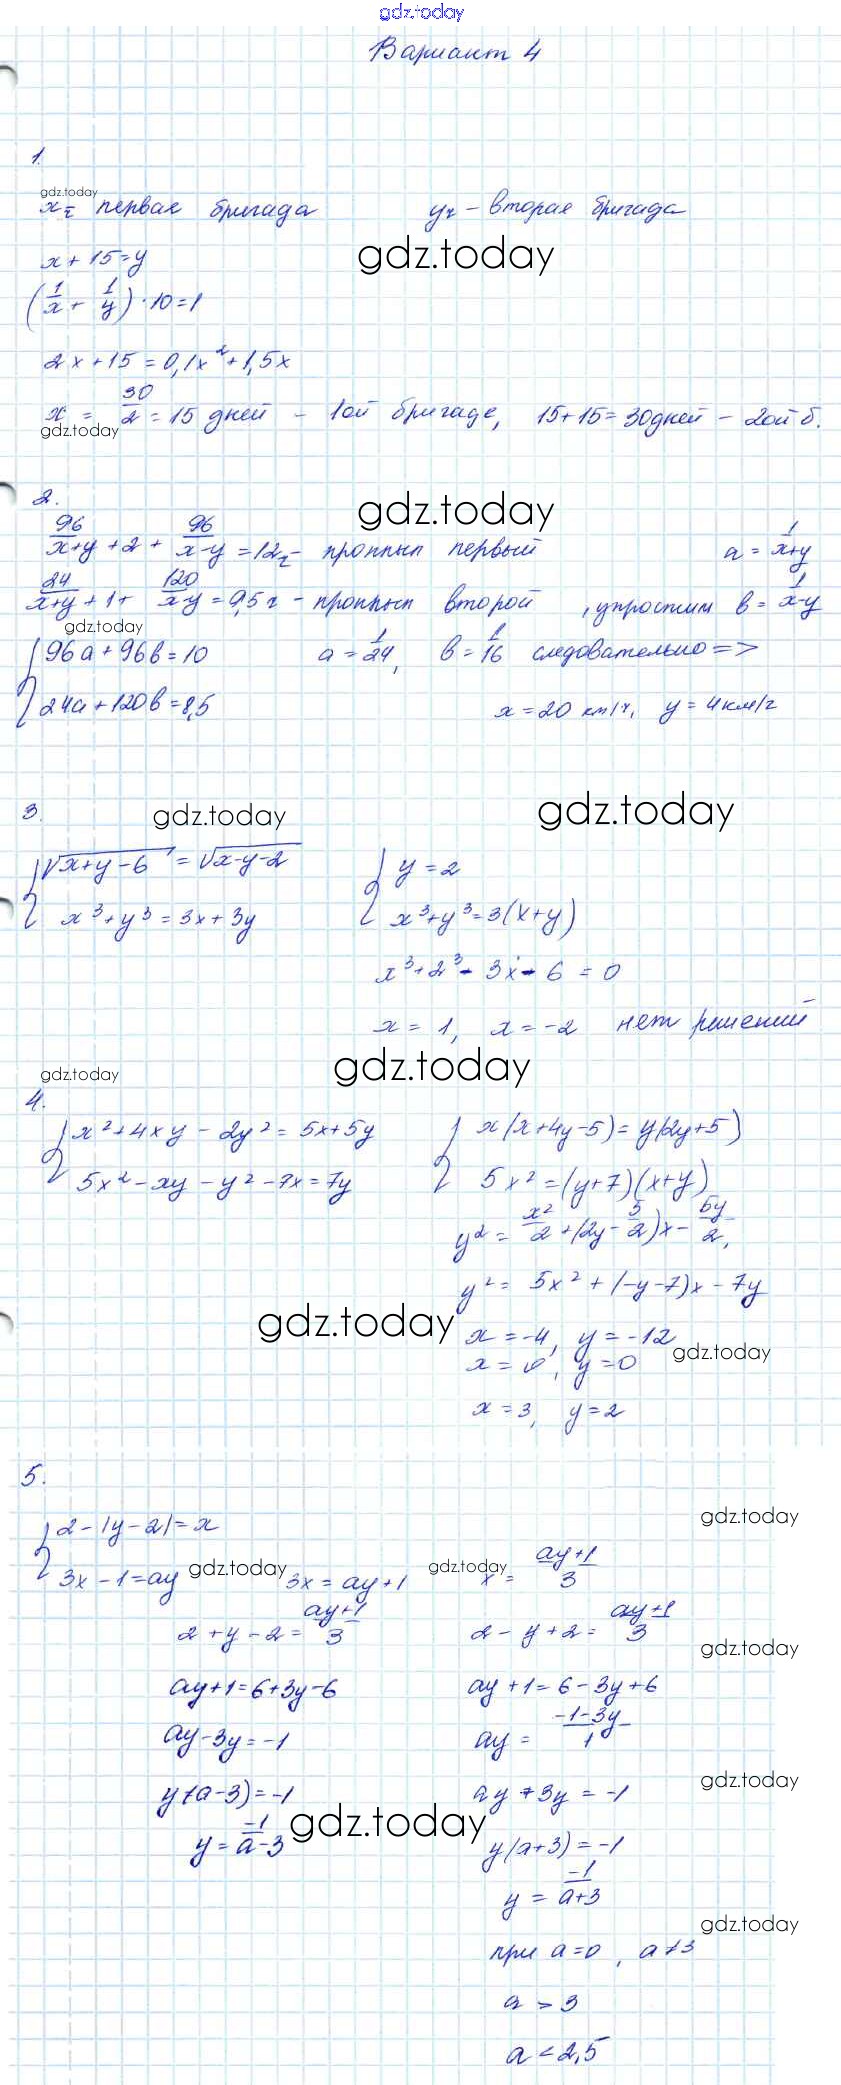 gdz.today
Вариант 4
1.
gdz.today
x - первая бригада y - вторая бригада
x + 15 = y
gdz.today
(1/x + 1/y) · 10 = 1
2x + 15 = 0,1x² + 1,5x
x = 30/2 = 15 дней - 1ой бригаде, 15+15=30дней - 2ой б.
gdz.today
2.
gdz.today
96/x+y + 2 + 96/x-y = 12 - проплыл первый a = 1/x+y
24/x+y + 1 + 120/x-y = 9,5 ч - проплыл второй, упростим в = 1/x-y
gdz.today
96a + 96в = 10 a = 1/24, в = 1/16 следовательно =>
24a + 120в = 8,5 x = 20 км/ч, y = 4 км/ч
3.
gdz.today
gdz.today
√x+y-6 = √x-y-2 y = 2
x³ + y³ = 3x + 3y x³+y³=3(x+y)
x³ + 2³ - 3x - 6 = 0
x = 1, x = -2 нет решений
gdz.today
gdz.today
4.
x² + 4xy - 2y² = 5x + 5y x(x+4y-5) = y(2y+5)
5x² - xy - y² - 7x = 7y 5x² = (y+7)(x+y)
y² = x²/2 + (2y - 5/2)x - 5y/2,
y² = 5x² + (-y-7)x - 7y
gdz.today
x = -4, y = -12
gdz.today
x = 0, y = 0
x = 3, y = 2
5.
gdz.today
2 - |y-2| = x
3x - 1 = ay gdz.today 3x = ay + 1 gdz.today x = ay+1/3
2 + y - 2 = ay+1/3 2 - y + 2 = ay+1/3
gdz.today
ay + 1 = 6 + 3y - 6 ay + 1 = 6 - 3y + 6
ay - 3y = -1 ay = -1-3y/1
gdz.today
y(a-3) = -1 ay + 3y = -1
gdz.today
y = -1/a-3 y(a+3) = -1
y = -1/a+3
gdz.today
при a = 0, a ≠ 3
a > 3
a < 2,5